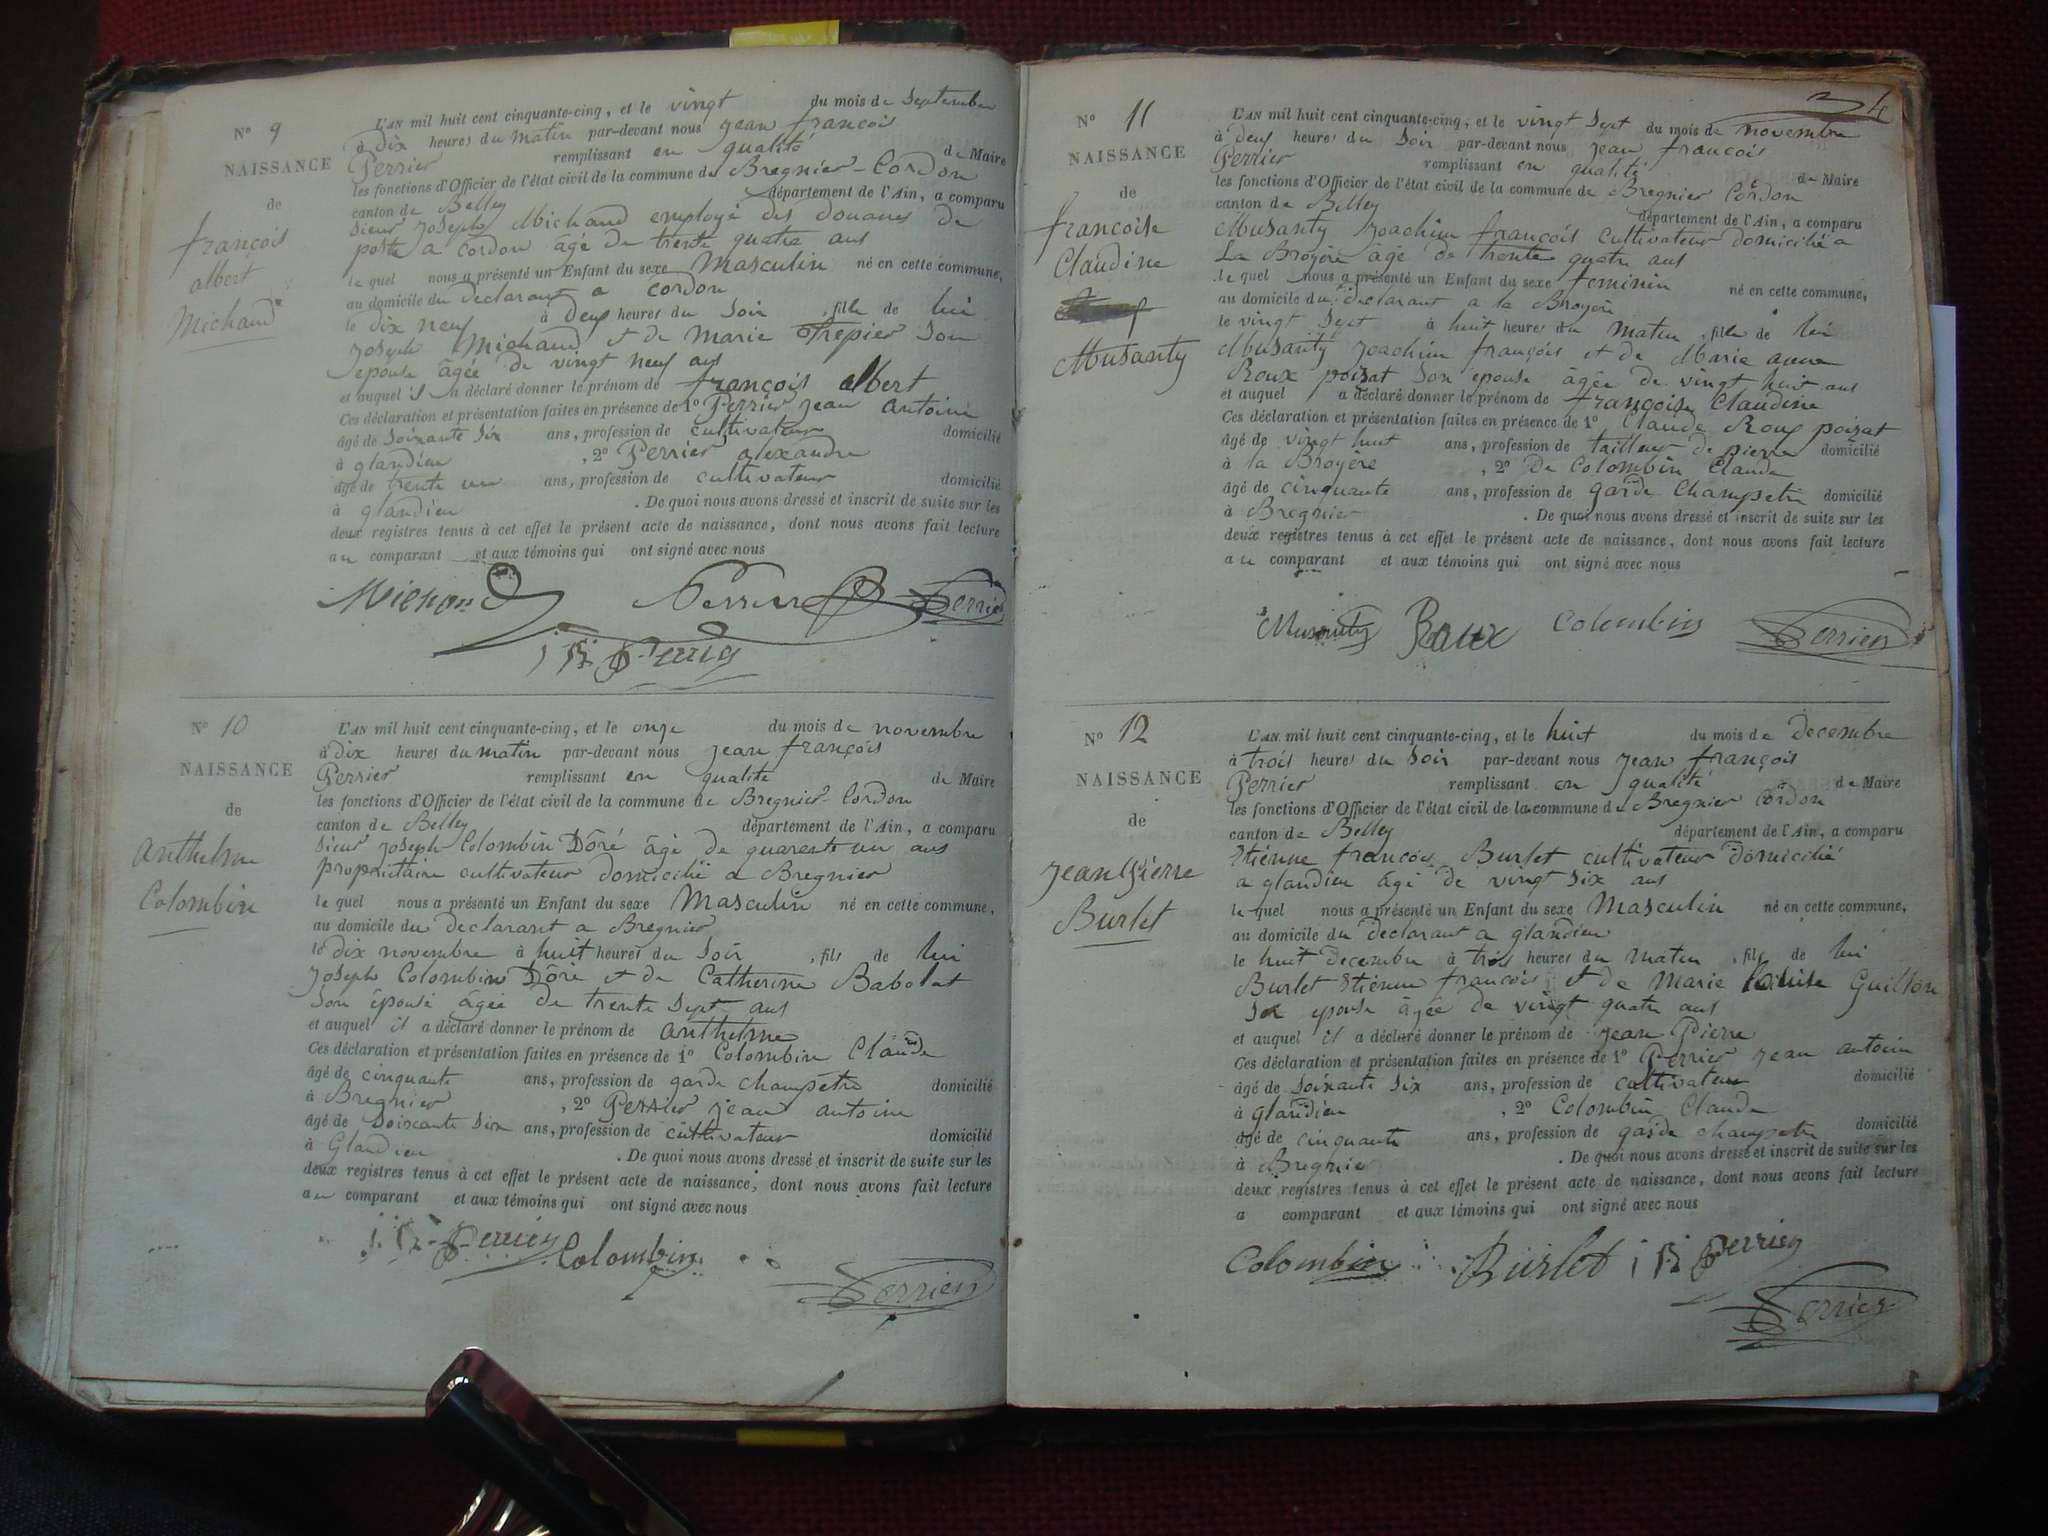 N° 9
NAISSANCE
de
françois
albert
Michaud
L'AN mil huit cent cinquante-cinq, et le vingt du mois de Septembre
à dix heures du matin par-devant nous jean françois
Perrier remplissant en qualité de Maire
les fonctions d'Officier de l'état civil de la commune de Bregnier-Cordon
canton de Belley département de l'Ain, a comparu
sieur joseph Michaud employé des douanes de
poste a cordon âgé de trente quatre ans
le quel nous a présenté un Enfant du sexe Masculin né en cette commune,
au domicile du declarant a cordon
le dix neuf à deux heures du soir , fils de lui
joseph Michaud et de Marie Trepier son
epouse âgée de vingt neuf ans
et auquel il a déclaré donner le prénom de françois albert
Ces déclaration et présentation faites en présence de 1° Perrier jean antoine
âgé de soixante six ans, profession de cultivateur domicilié
à glandieu , 2° Perrier alexandre
âgé de trente un ans, profession de cultivateur domicilié
à glandieu . De quoi nous avons dressé et inscrit de suite sur les
deux registres tenus à cet effet le présent acte de naissance, dont nous avons fait lecture
au comparant et aux témoins qui ont signé avec nous
Michaud Perrier Perrier
N° 10
NAISSANCE
de
anthelme
Colombin
L'AN mil huit cent cinquante-cinq, et le onze du mois de novembre
à dix heures du matin par-devant nous jean françois
Perrier remplissant en qualité de Maire
les fonctions d'Officier de l'état civil de la commune de Bregnier-Cordon
canton de Belley département de l'Ain, a comparu
sieur joseph Colombin Dôré âgé de quarente un ans
propriétaire cultivateur domicilié a Bregnier
le quel nous a présenté un Enfant du sexe Masculin né en cette commune,
au domicile du declarant a Bregnier
le dix novembre à huit heures du soir , fils de lui
joseph Colombin Dôré et de Catherine Babolat
son épouse âgée de trente sept ans
et auquel il a déclaré donner le prénom de anthelme
Ces déclaration et présentation faites en présence de 1° Colombin Claude
âgé de cinquante ans, profession de garde champêtre domicilié
à Bregnier , 2° Perrier jean antoine
âgé de soixante six ans, profession de cultivateur domicilié
à Glandieu . De quoi nous avons dressé et inscrit de suite sur les
deux registres tenus à cet effet le présent acte de naissance, dont nous avons fait lecture
au comparant et aux témoins qui ont signé avec nous
Colombin
Perrier
4
N° 11
NAISSANCE
de
francoise
Claudine
Musanty
L'AN mil huit cent cinquante-cinq, et le vingt sept du mois de novembre
à deux heures du soir par-devant nous jean françois
Perrier remplissant en qualité de Maire
les fonctions d'Officier de l'état civil de la commune de Bregnier Cordon
canton de Belley département de l'Ain, a comparu
Musanty joachim françois cultivateur domicilié a
La Broyère âgé de trente quatre ans
le quel nous a présenté un Enfant du sexe feminin né en cette commune,
au domicile du declarant a la Broyère
le vingt sept à huit heures du matin , fille de lui
Musanty joachim françois et de Marie anne
Roux poizat son epouse âgée de vingt huit ans
et auquel a déclaré donner le prénom de françoise Claudine
Ces déclaration et présentation faites en présence de 1° Claude Roux poizat
âgé de vingt huit ans, profession de tailleur de pierre domicilié
à la Broyère , 2° De Colombin Claude
âgé de cinquante ans, profession de garde champetre domicilié
à Bregnier . De quoi nous avons dressé et inscrit de suite sur les
deux registres tenus à cet effet le présent acte de naissance, dont nous avons fait lecture
au comparant et aux témoins qui ont signé avec nous
Musanty Roux Colombin Perrier
N° 12
NAISSANCE
de
jean Pierre
Burlet
L'AN mil huit cent cinquante-cinq, et le huit du mois de decembre
à trois heures du soir par-devant nous jean françois
Perrier remplissant en qualité de Maire
les fonctions d'Officier de l'état civil de la commune de Bregnier Cordon
canton de Belley département de l'Ain, a comparu
Etienne francois Burlet cultivateur domicilié
a glandieu âgé de vingt six ans
le quel nous a présenté un Enfant du sexe Masculin né en cette commune,
au domicile du declarant a glandieu
le huit decembre à trois heures du matin , fils de lui
Burlet Etienne francois et de Marie Louise Guillon
epouse âgée de vingt quatre ans
et auquel il a déclaré donner le prénom de jean Pierre
Ces déclaration et présentation faites en présence de 1° Perrier jean antoine
âgé de soixante six ans, profession de cultivateur domicilié
à glandieu , 2° Colombin Claude
âgé de cinquante ans, profession de garde champetre domicilié
à Bregnier . De quoi nous avons dressé et inscrit de suite sur les
deux registres tenus à cet effet le présent acte de naissance, dont nous avons fait lecture
a comparant et aux témoins qui ont signé avec nous
Colombin Burlet
Perrier